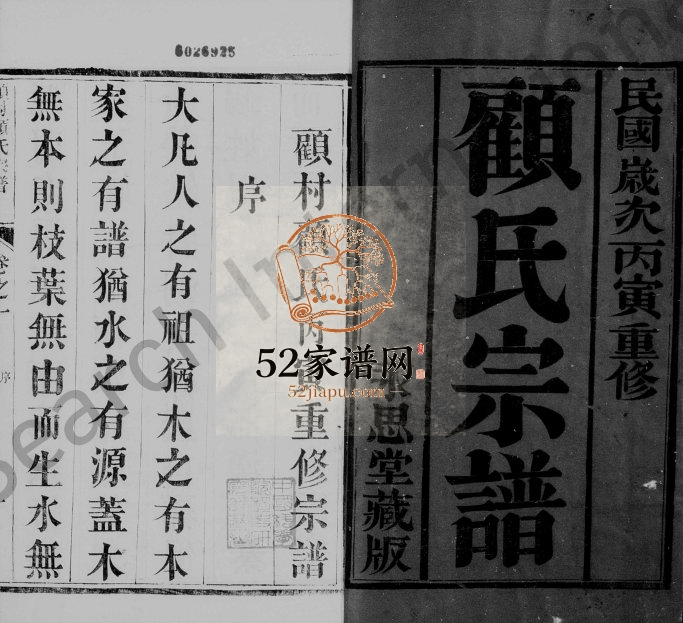 民國歲次丙寅重修
顧氏宗譜
思堂藏版
6026925
顧村顧氏丙寅重修宗譜
序
大凡人之有祖猶木之有本
家之有譜猶水之有源蓋木
無本則枝葉無由而生水無
卷之一
序
52家谱网
52jiapu.com
Search